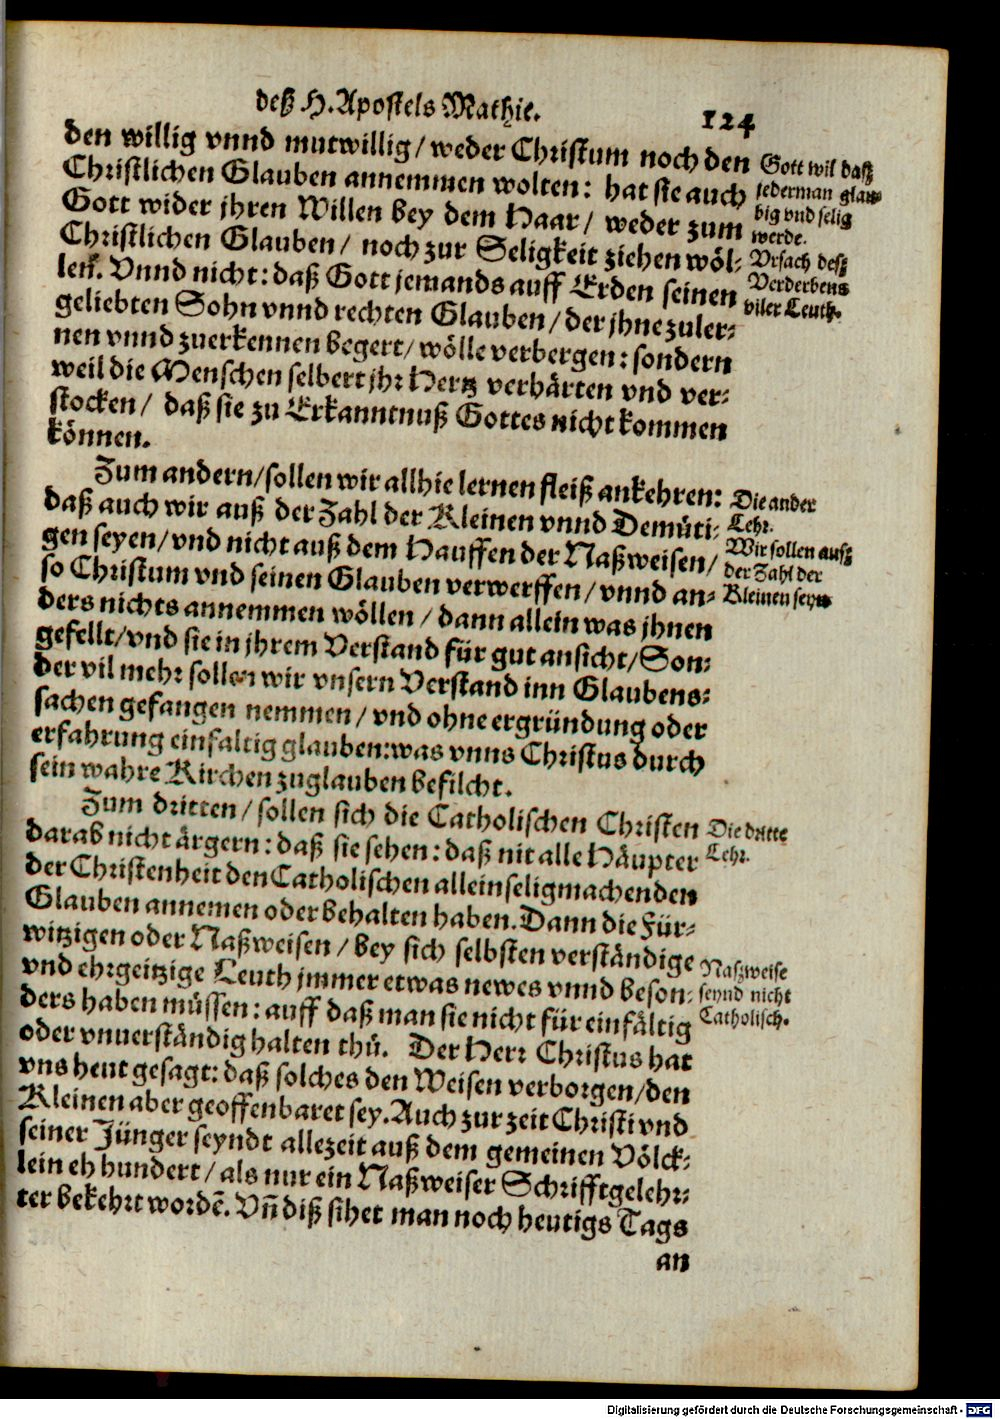 deß H. Apostels Mathie.
124
den willig vnnd mutwillig/ weder Christum noch den
Christlichen Glauben annemmen wolten: hat sie auch
Gott wider jhren Willen bey dem Haar/ weder zum
Christlichen Glauben/ noch zur Seligkeit ziehen wöl-
len. Vnnd nicht: daß Gott jemands auff Erden seinen
geliebten Sohn vnnd rechten Glauben/ der jhne zuler-
nen vnnd zuerkennen begert/ wölle verbergen: sondern
weil die Menschen selbert jhr Hertz verhärten vnd ver-
stocken/ daß sie zu Erkanntnuß Gottes nicht kommen
können.
Gott wil daß
jederman glau-
big vnd selig
werde.
Vrsach deß
Verderbens
viler Leuth.
Zum andern/ sollen wir allhie lernen fleiß ankehren:
daß auch wir auß der Zahl der Kleinen vnnd Demüti-
gen seyen/ vnd nicht auß dem Hauffen der Naßweisen/
so Christum vnd seinen Glauben verwerffen/ vnnd an-
ders nichts annemmen wöllen/ dann allein was jhnen
gefellt/ vnd sie in jhrem Verstand für gut ansicht/ Son-
der vil mehr sollen wir vnsern Verstand inn Glaubens-
sachen gefangen nemmen/ vnd ohne ergründung oder
erfahrung einfaltig glauben: was vnns Christus durch
sein wahre Kirchen zuglauben befilcht.
Die ander
Lehr.
Wir sollen auß
der Zahl der
Kleinen seyn
Zum dritten/ sollen sich die Catholischen Christen
darab nicht ärgern: daß sie sehen: daß nit alle Häupter
der Christenheit den Catholischen alleinseligmachenden
Glauben annemen oder behalten haben. Dann die Für-
witzigen oder Naßweisen/ bey sich selbsten verständige
vnd ehrgeitzige Leuth jmmer etwas newes vnnd beson-
ders haben müssen: auff daß man sie nicht für einfältig
oder vnuerständig halten thů. Der Herr Christus hat
vns heut gesagt: daß solches den Weisen verborgen/ den
Kleinen aber geoffenbaret sey. Auch zur zeit Christi vnd
seiner Jünger seyndt allezeit auß dem gemeinen Völck-
lein eh hundert/ als nur ein Naßweiser Schrifftgelehr-
ter bekehrt wordē. Vñ diß sihet man noch heutigs Tags
an
Die dritte
Lehr.
Naßweise
seynd nicht
Catholisch.
Digitalisierung gefördert durch die Deutsche Forschungsgemeinschaft - DFG